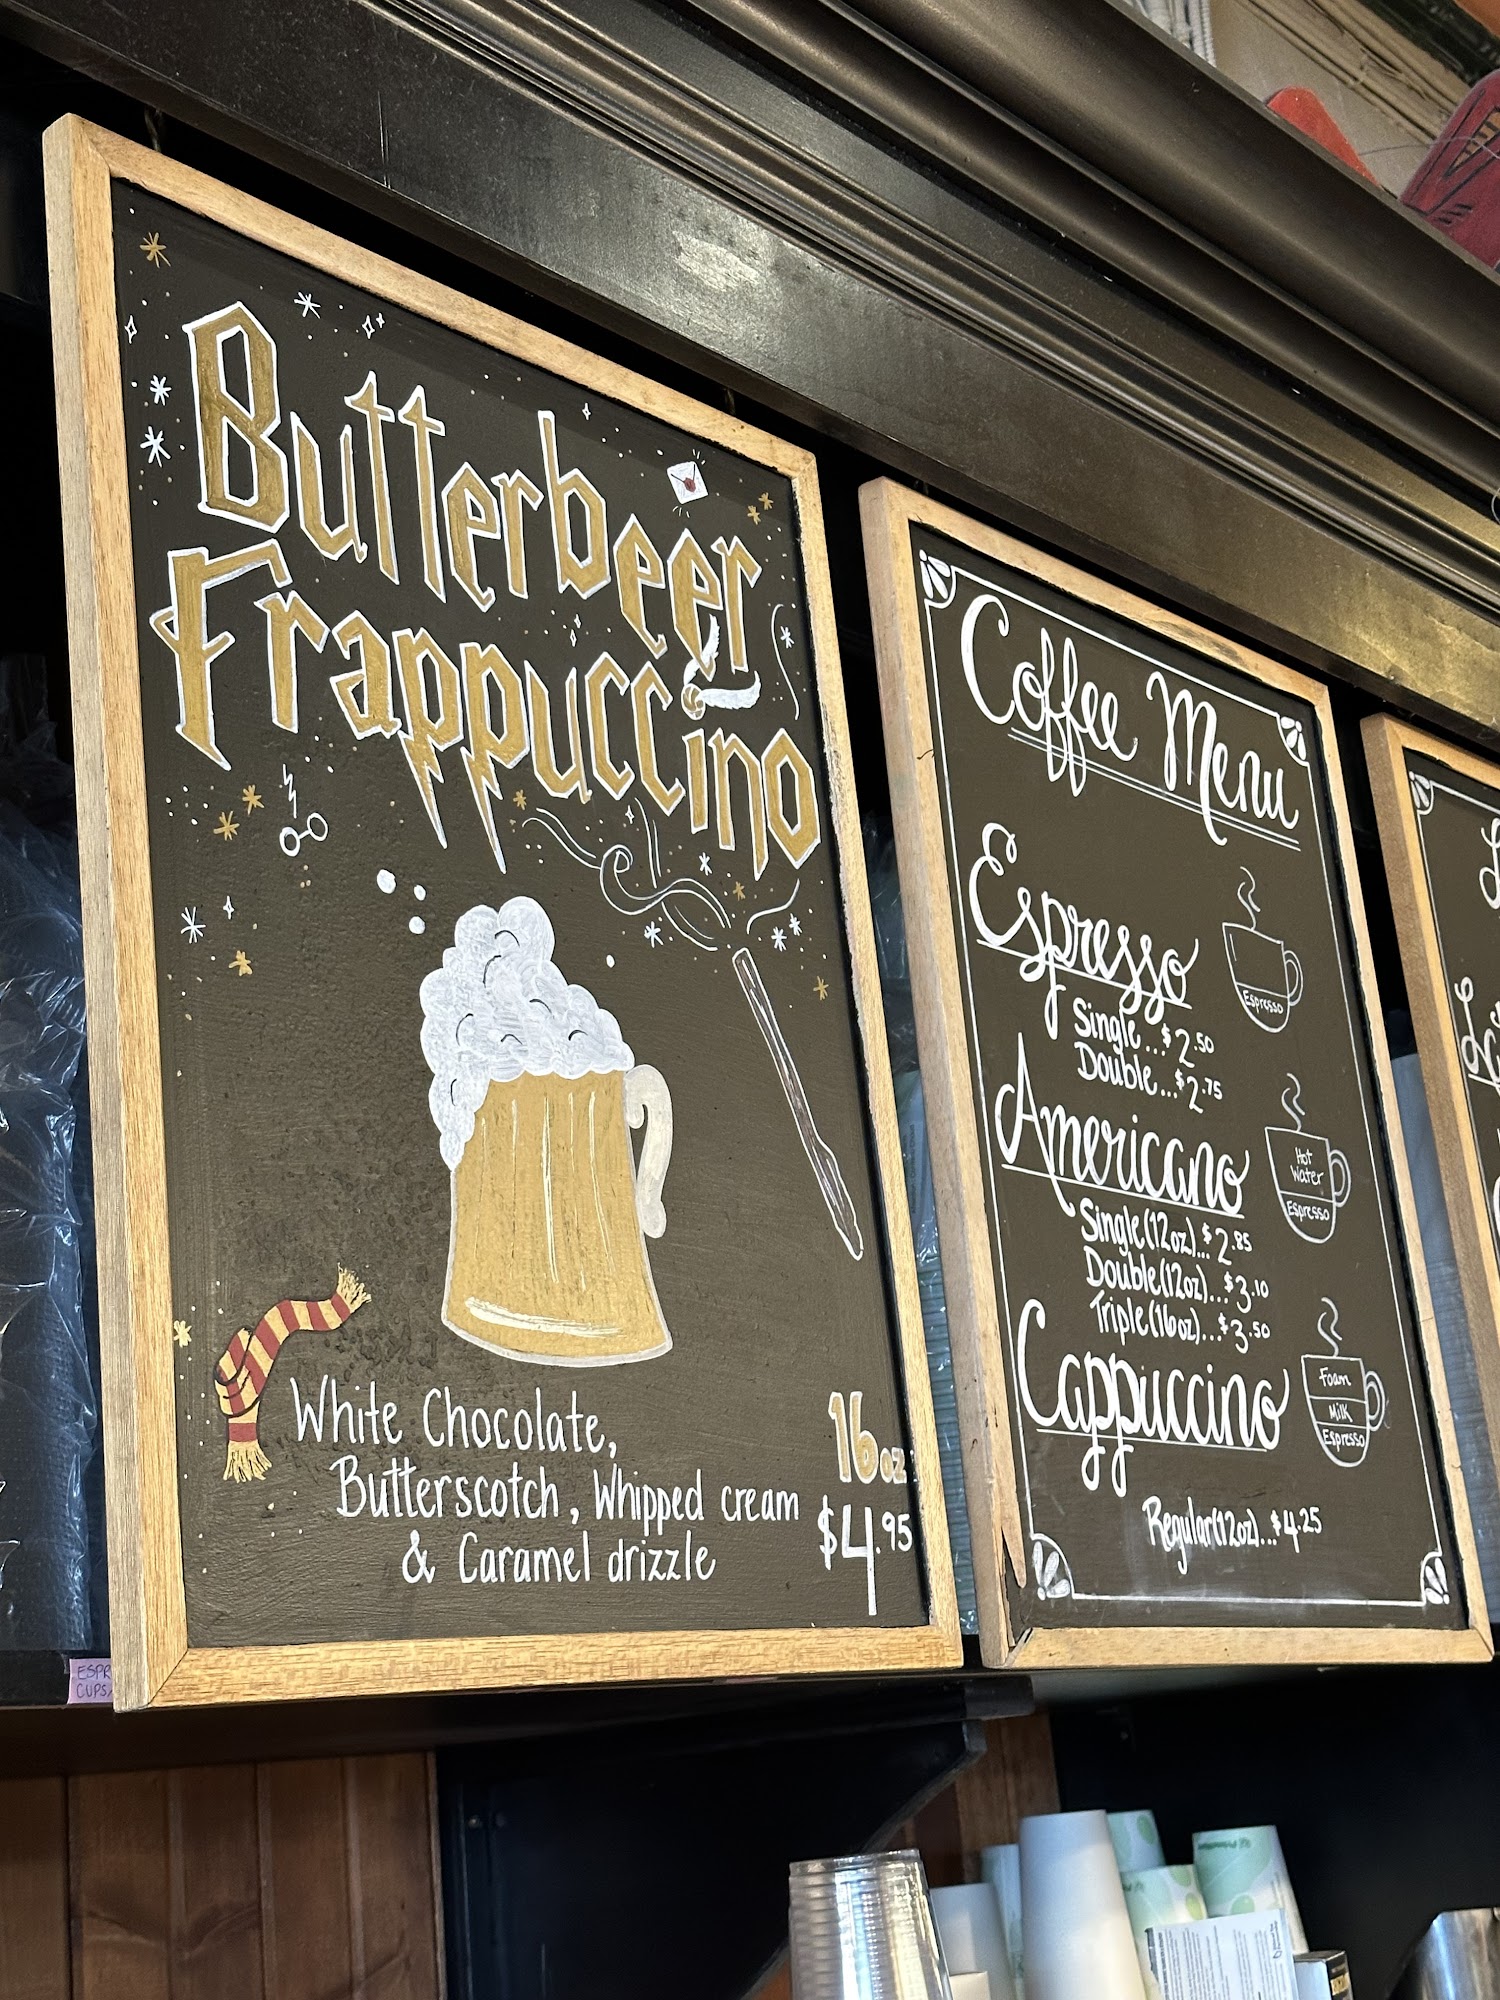 Butterbeer
Frappuccino
White Chocolate,
Butterscotch, Whipped cream
& Caramel drizzle
16oz
$4.95
Coffee Menu
Espresso
Single...$2.50
Double...$2.75
Espresso
Americano
Single(12oz)..$2.85
Double(12oz)...$3.10
Triple(16oz)...$3.50
Hot
Water
Espresso
Cappuccino
Regular(12oz)...$4.25
Foam
Milk
Espresso
CUPS